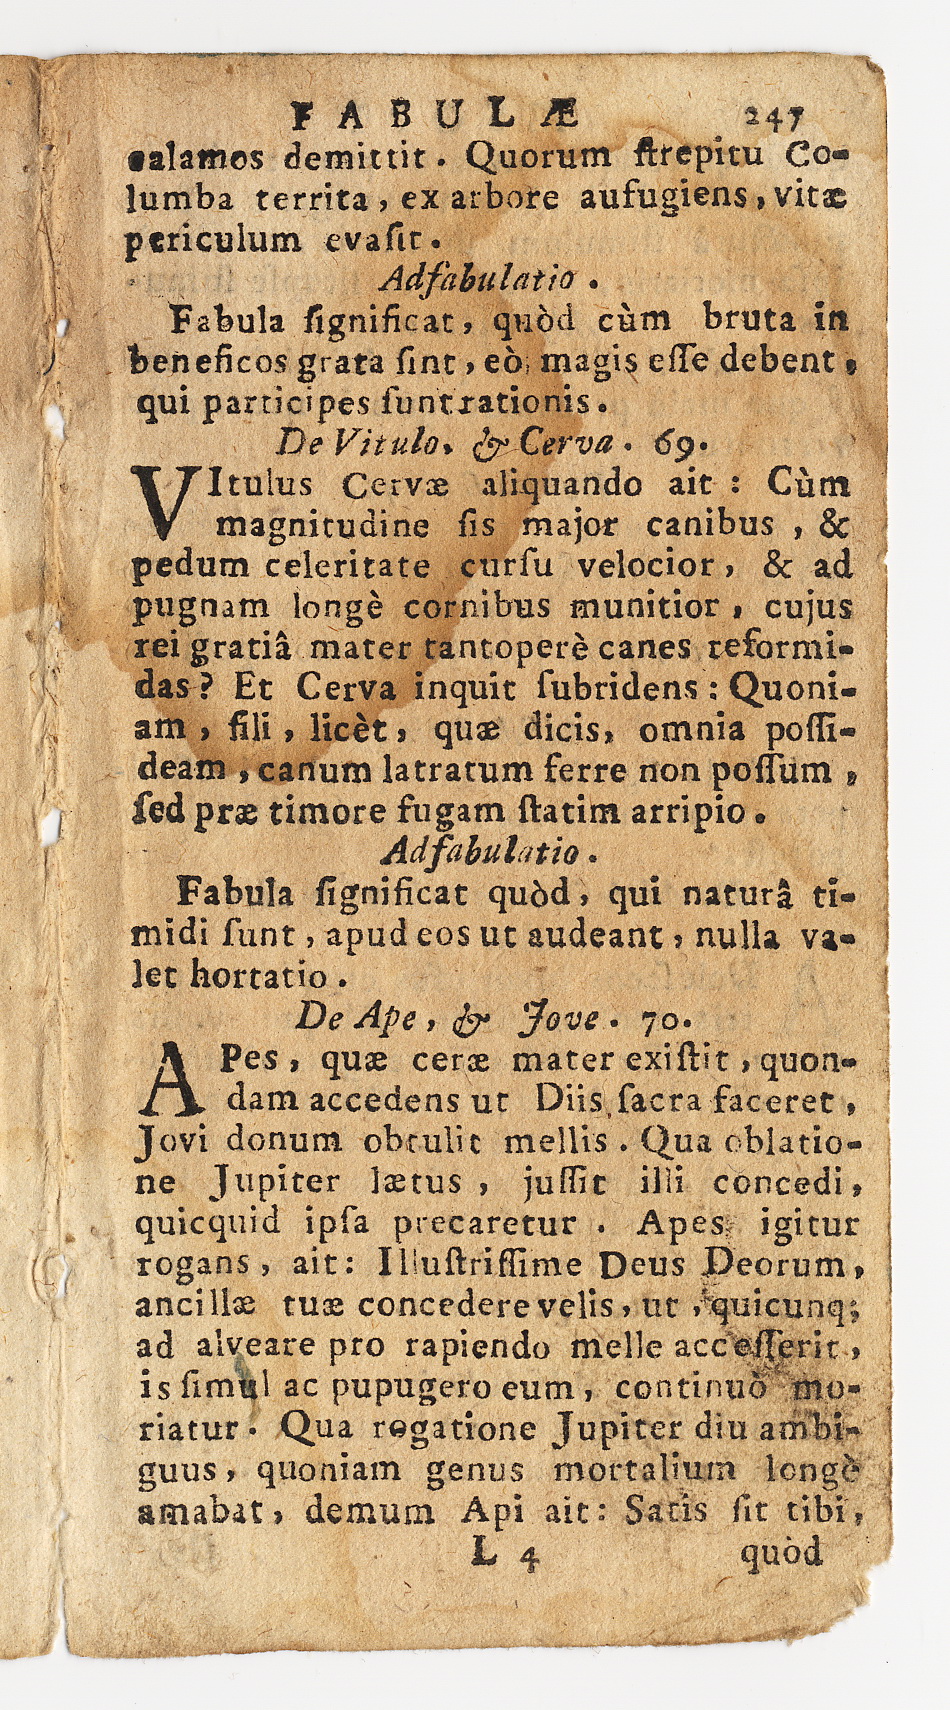 FABULÆ 247
calamos demittit. Quorum ſtrepitu Co-
lumba territa, ex arbore aufugiens, vitæ
periculum evaſit.
Adfabulatio.
Fabula ſignificat, quòd cùm bruta in
beneficos grata ſint, eò magis eſſe debent,
qui participes ſunt rationis.
De Vitulo, & Cerva. 69.
VItulus Cervæ aliquando ait: Cùm
magnitudine ſis major canibus, &
pedum celeritate curſu velocior, & ad
pugnam longè cornibus munitior, cujus
rei gratiâ mater tantoperè canes reformi-
das? Et Cerva inquit ſubridens: Quoni-
am, fili, licèt, quæ dicis, omnia poſſi-
deam, canum latratum ferre non poſſum,
ſed præ timore fugam ſtatim arripio.
Adfabulatio.
Fabula ſignificat quòd, qui naturâ ti-
midi ſunt, apud eos ut audeant, nulla va-
let hortatio.
De Ape, & Jove. 70.
APes, quæ ceræ mater exiſtit, quon-
dam accedens ut Diis ſacra faceret,
Jovi donum obtulit mellis. Qua oblatio-
ne Jupiter lætus, juſſit illi concedi,
quicquid ipſa precaretur. Apes igitur
rogans, ait: Illuſtriſſime Deus Deorum,
ancillæ tuæ concedere velis, ut, quicunq;
ad alveare pro rapiendo melle acceſſerit,
is ſimul ac pupugero eum, continuò mo-
riatur. Qua rogatione Jupiter diu ambi-
guus, quoniam genus mortalium longè
amabat, demum Api ait: Satis ſit tibi,
L 4 quòd